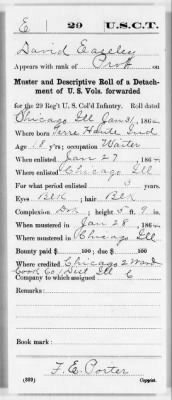 E 29 U.S.C.T.
David Easeley
Appears with rank of Prvt
Muster and Descriptive Roll of a Detach-
ment of U. S. Vols. forwarded
for the 29 Reg't U. S. Col'd Infantry. Roll dated
Chicago Ill Jan 31, 186
Where born Terre Haute Ind
Age 18 y'rs; occupation Waiter
When enlisted Jan 27, 186
Where enlisted Chicago Ill
For what period enlisted 3 years.
Eyes Blk; hair Blk
Complexion Drk; height 5 ft. 9 in.
When mustered in Jan 28, 186
Where mustered in Chicago Ill
Bounty paid $ 100; due $ 100
Where credited Chicago 2 Ward
Cook Co 1 Dist Ill
Company to which assigned E
Remarks:
Book mark:
F. E. Porter
(339) Copyist.